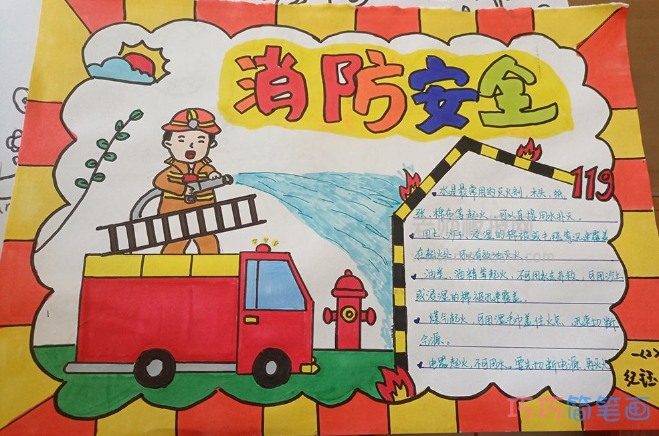 消防安全
119
水是最常用的灭火剂，木头、纸
张、棉布等起火，可以直接用水扑灭。
用土、沙子、浸湿的棉被或毛毯等迅速覆盖
在起火处，可以有效地灭火。
油类、酒精等起火，不可用水去扑救，可用沙土
或浸湿的棉被迅速覆盖。
煤气起火，可用湿毛巾盖住火点，迅速切断
气源。
电器起火，不可用水，要先切断电源，再灭火
一(2)
巧巧简笔画